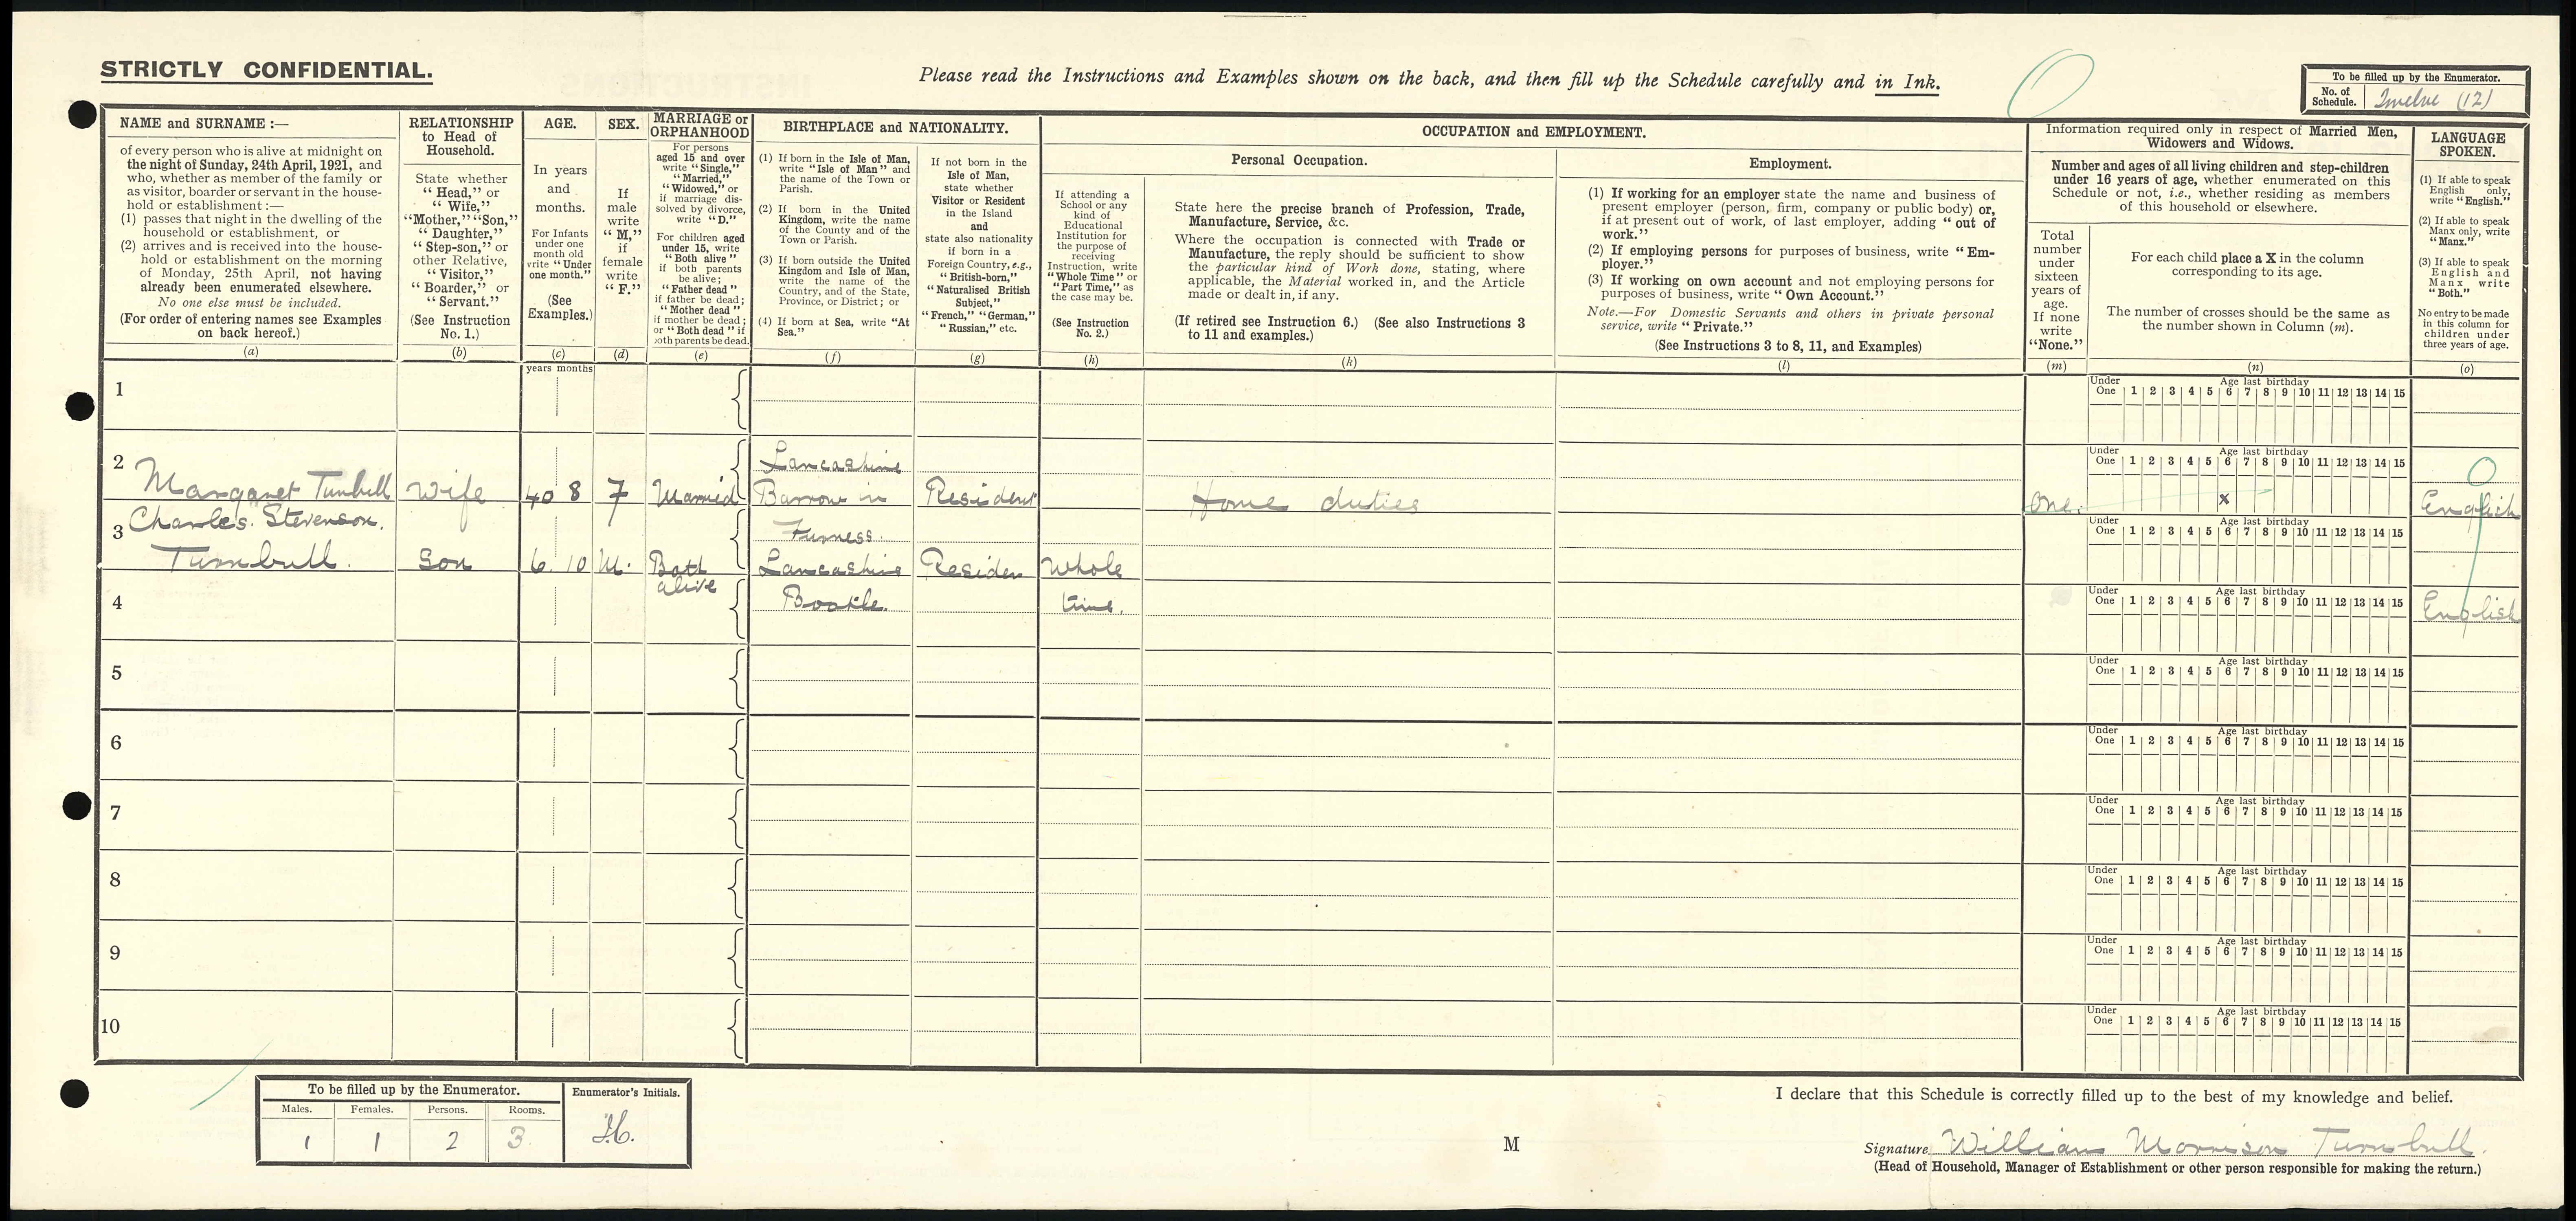 STRICTLY CONFIDENTIAL.
Please read the Instructions and Examples shown on the back, and then fill up the Schedule carefully and in Ink.
To be filled up by the Enumerator.
No. of Schedule. Twelve (12)
NAME and SURNAME :—
of every person who is alive at midnight on
the night of Sunday, 24th April, 1921, and
who, whether as member of the family or
as visitor, boarder or servant in the house-
hold or establishment :—
(1) passes that night in the dwelling of the
household or establishment, or
(2) arrives and is received into the house-
hold or establishment on the morning
of Monday, 25th April, not having
already been enumerated elsewhere.
No one else must be included.
(For order of entering names see Examples
on back hereof.)
(a)
RELATIONSHIP
to Head of
Household.
State whether
“Head,” or
“Wife,”
“Mother,” “Son,”
“Daughter,”
“Step-son,” or
other Relative,
“Visitor,”
“Boarder,” or
“Servant.”
(See Instruction
No. 1.)
(b)
AGE.
In years
and
months.
For Infants
under one
month old
write “Under
one month.”
(See
Examples.)
(c)
SEX.
If
male
write
“M,”
if
female
write
“F.”
(d)
MARRIAGE or
ORPHANHOOD
For persons
aged 15 and over
write “Single,”
“Married,”
“Widowed,” or
if marriage dis-
solved by divorce,
write “D.”
For children aged
under 15, write
“Both alive”
if both parents
be alive;
“Father dead”
if father be dead;
“Mother dead”
if mother be dead;
or “Both dead” if
both parents be dead.
(e)
BIRTHPLACE and NATIONALITY.
(1) If born in the Isle of Man,
write “Isle of Man” and
the name of the Town or
Parish.
(2) If born in the United
Kingdom, write the name
of the County and of the
Town or Parish.
(3) If born outside the United
Kingdom and Isle of Man,
write the name of the
Country, and of the State,
Province, or District; or
(4) If born at Sea, write “At
Sea.”
(f)
If not born in the
Isle of Man,
state whether
Visitor or Resident
in the Island
and
state also nationality
if born in a
Foreign Country, e.g.,
“British-born.”
“Naturalised British
Subject,”
“French,” “German,”
“Russian,” etc.
(g)
OCCUPATION and EMPLOYMENT.
If attending a
School or any
kind of
Educational
Institution for
the purpose of
receiving
Instruction, write
“Whole Time” or
“Part Time,” as
the case may be.
(See Instruction
No. 2.)
(h)
Personal Occupation.
State here the precise branch of Profession, Trade,
Manufacture, Service, &c.
Where the occupation is connected with Trade or
Manufacture, the reply should be sufficient to show
the particular kind of Work done, stating, where
applicable, the Material worked in, and the Article
made or dealt in, if any.
(If retired see Instruction 6.) (See also Instructions 3
to 11 and examples.)
(k)
Employment.
(1) If working for an employer state the name and business of
present employer (person, firm, company or public body) or,
if at present out of work, of last employer, adding “out of
work.”
(2) If employing persons for purposes of business, write “Em-
ployer.”
(3) If working on own account and not employing persons for
purposes of business, write “Own Account.”
Note.—For Domestic Servants and others in private personal
service, write “Private.”
(See Instructions 3 to 8, 11, and Examples)
(l)
Information required only in respect of Married Men,
Widowers and Widows.
Number and ages of all living children and step-children
under 16 years of age, whether enumerated on this
Schedule or not, i.e., whether residing as members
of this household or elsewhere.
Total
number
under
sixteen
years of
age.
If none
write
“None.”
(m)
For each child place a X in the column
corresponding to its age.
The number of crosses should be the same as
the number shown in Column (m).
(n)
LANGUAGE
SPOKEN.
(1) If able to speak
English only,
write “English.”
(2) If able to speak
Manx only, write
“Manx.”
(3) If able to speak
English and
Manx write
“Both.”
No entry to be made
in this column for
children under
three years of age.
(o)
years months
1
Under One 1 2 3 4 5 6 7 8 9 10 11 12 13 14 15
Age last birthday
2 Margaret Turnbull Wife 40 8 F Married Lancashire Barrow in Furness. Resident Home duties One. English
Under One 1 2 3 4 5 6 7 8 9 10 11 12 13 14 15
Age last birthday
x
3 Charles. Stevenson. Turnbull. Son 6. 10 M. Both alive Lancashire Bootle. Residen Whole time. English
Under One 1 2 3 4 5 6 7 8 9 10 11 12 13 14 15
Age last birthday
4
Under One 1 2 3 4 5 6 7 8 9 10 11 12 13 14 15
Age last birthday
5
Under One 1 2 3 4 5 6 7 8 9 10 11 12 13 14 15
Age last birthday
6
Under One 1 2 3 4 5 6 7 8 9 10 11 12 13 14 15
Age last birthday
7
Under One 1 2 3 4 5 6 7 8 9 10 11 12 13 14 15
Age last birthday
8
Under One 1 2 3 4 5 6 7 8 9 10 11 12 13 14 15
Age last birthday
9
Under One 1 2 3 4 5 6 7 8 9 10 11 12 13 14 15
Age last birthday
10
Under One 1 2 3 4 5 6 7 8 9 10 11 12 13 14 15
Age last birthday
To be filled up by the Enumerator.
Males. Females. Persons. Rooms.
1 1 2 3
Enumerator's Initials.
M
I declare that this Schedule is correctly filled up to the best of my knowledge and belief.
Signature William Morrison Turnbull.
(Head of Household, Manager of Establishment or other person responsible for making the return.)